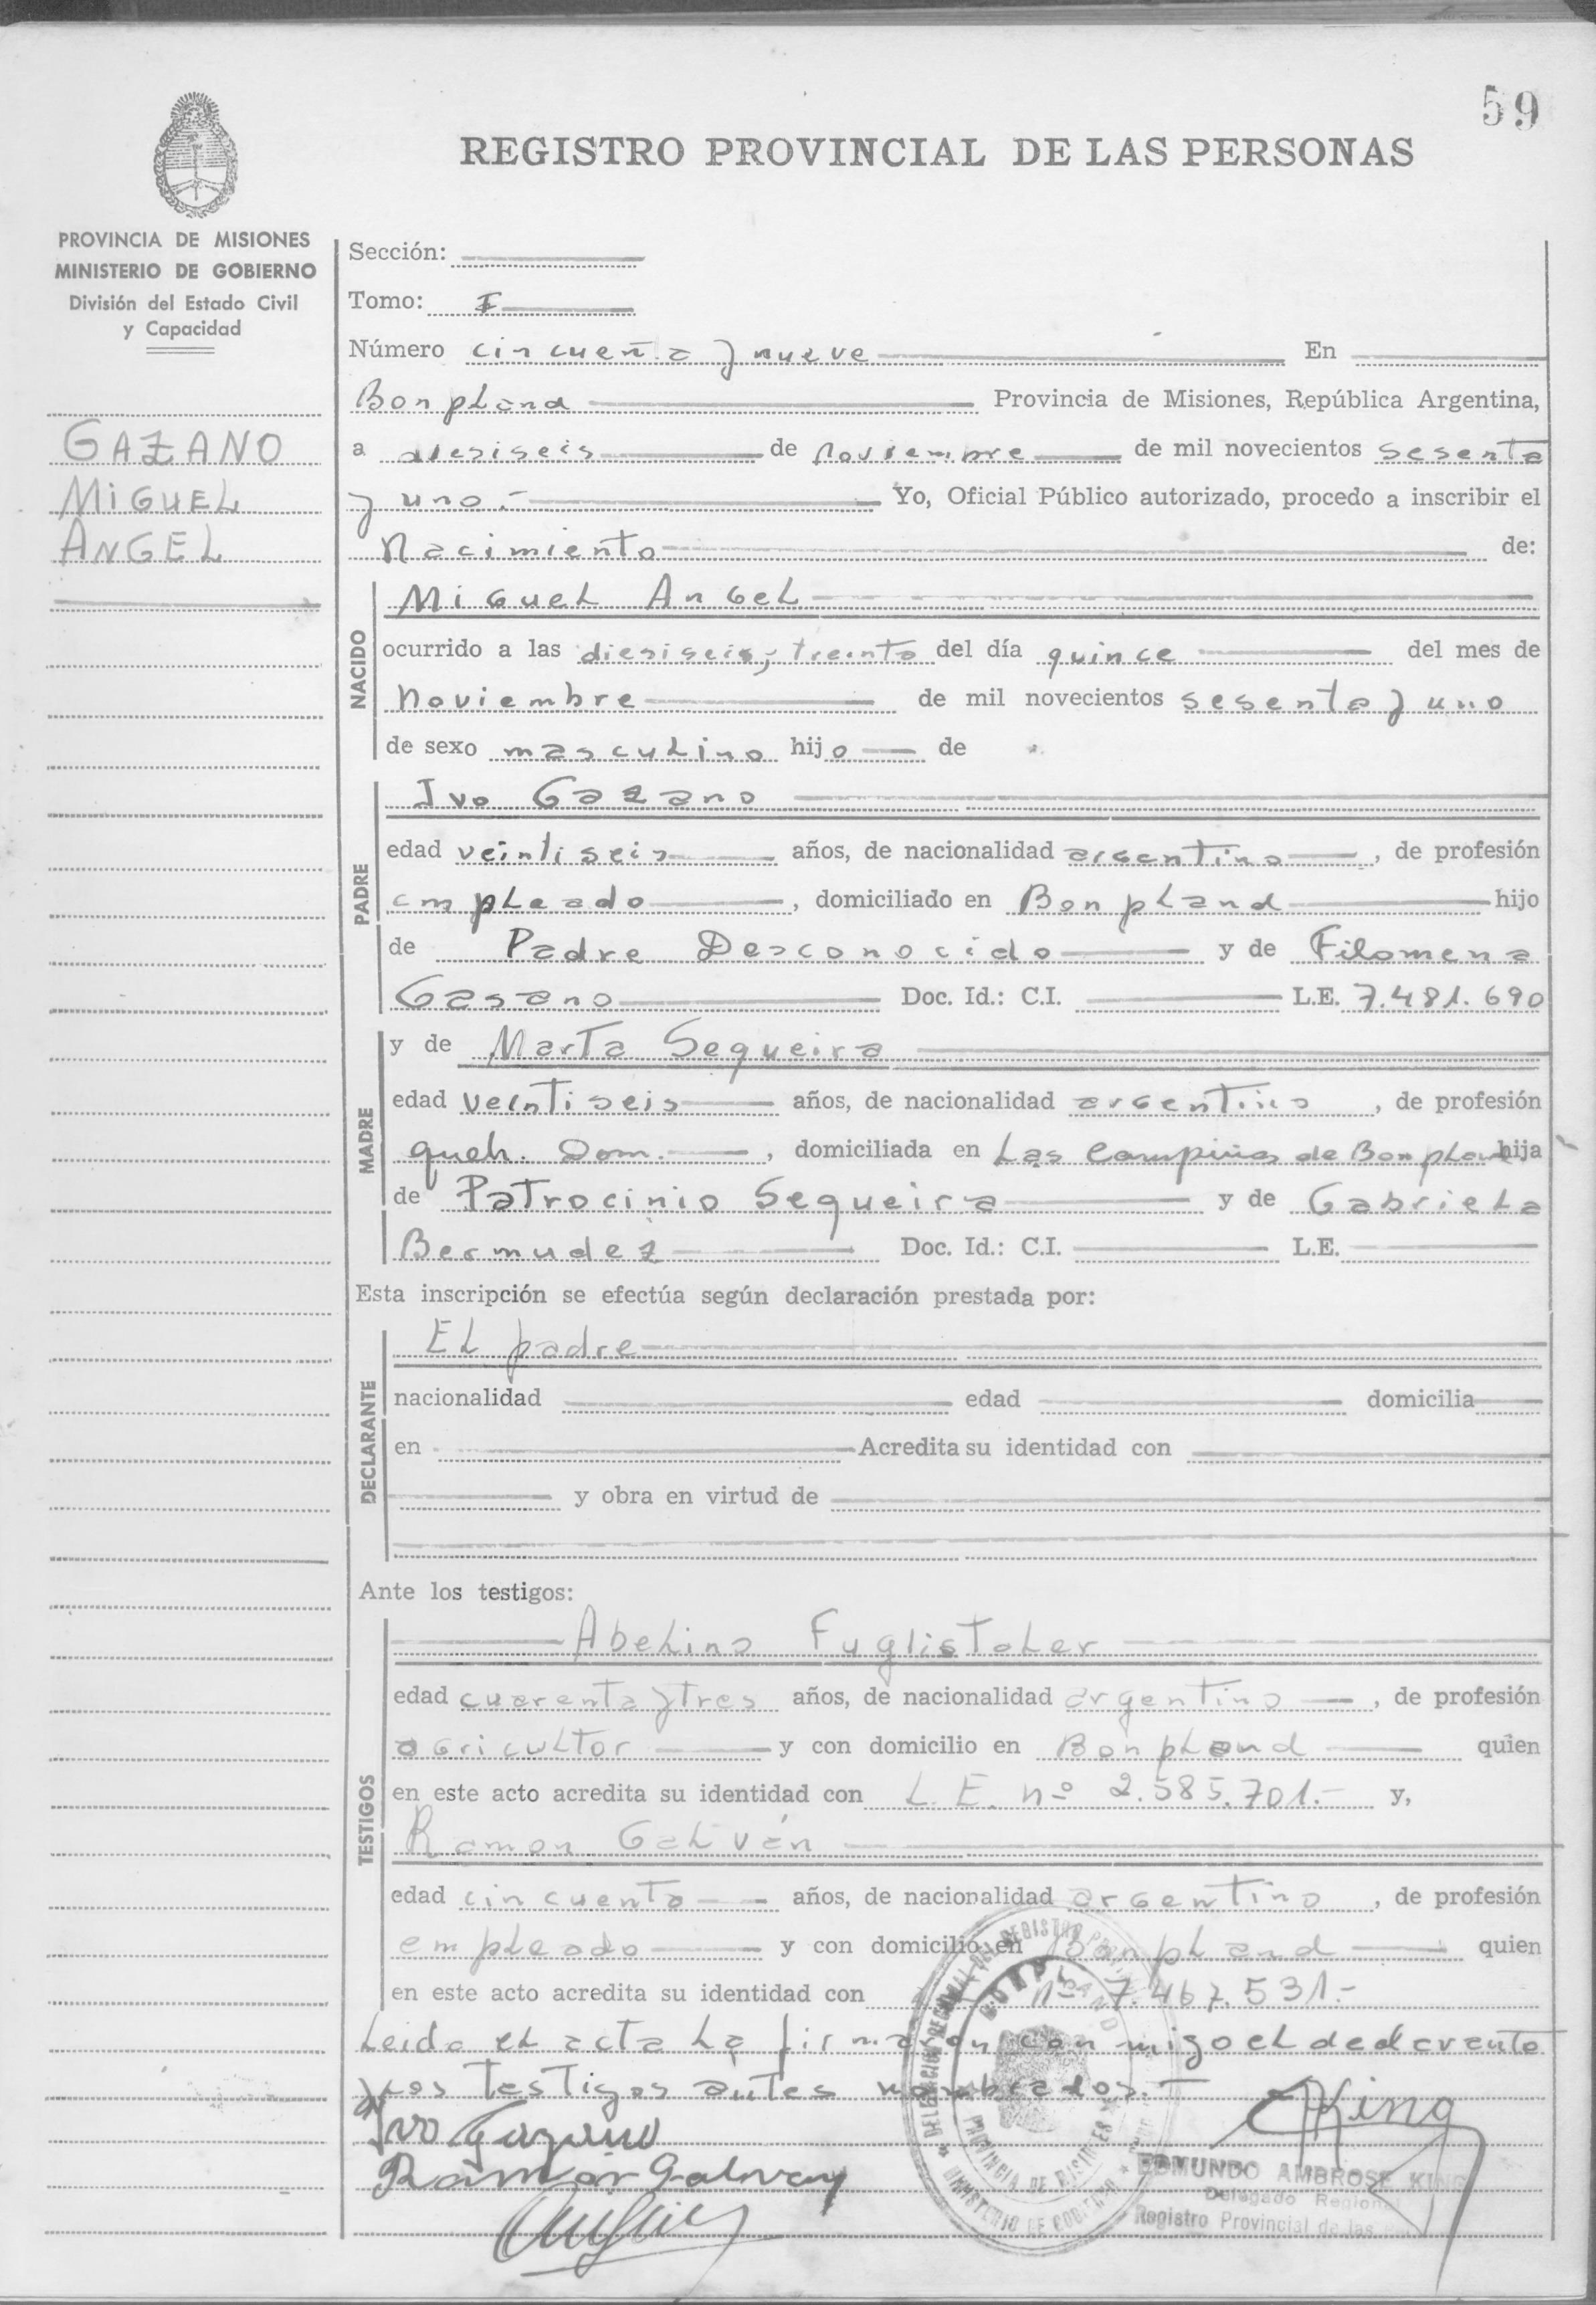 59
REGISTRO PROVINCIAL DE LAS PERSONAS
PROVINCIA DE MISIONES
MINISTERIO DE GOBIERNO
División del Estado Civil
y Capacidad
GAZANO
MIGUEL
ANGEL
Sección:
Tomo: I
Número cincuenta y nueve En
Bonpland Provincia de Misiones, República Argentina,
a diesiseis de Noviembre de mil novecientos sesenta
y uno.- Yo, Oficial Público autorizado, procedo a inscribir el
Nacimiento de:
NACIDO
Miguel Angel
ocurrido a las diesiseis, treinta del día quince del mes de
Noviembre de mil novecientos sesenta y uno
de sexo masculino hijo de
PADRE
Ivo Gazano
edad veintiseis años, de nacionalidad argentino, de profesión
empleado, domiciliado en Bonpland hijo
de Padre Desconocido y de Filomena
Gasano Doc. Id.: C.I. L.E. 7.481.690
MADRE
y de Marta Sequeira
edad veintiseis años, de nacionalidad argentina, de profesión
queh. Dom., domiciliada en Las Campiñas de Bonpland hija
de Patrocinio Sequeira y de Gabriela
Bermudez Doc. Id.: C.I. L.E.
Esta inscripción se efectúa según declaración prestada por:
DECLARANTE
El padre
nacionalidad edad domicilia
en Acredita su identidad con
y obra en virtud de
Ante los testigos:
TESTIGOS
Abelino Fuglistaler
edad cuarenta y tres años, de nacionalidad argentino, de profesión
agricultor y con domicilio en Bonpland quien
en este acto acredita su identidad con L.E. nº 2.585.701.- y,
Ramon Galván
edad cincuenta años, de nacionalidad argentino, de profesión
empleado y con domicilio en Bonpland quien
en este acto acredita su identidad con nº 7.467.531.-
Leida el acta la firmaron con migo el declarante
y los testigos antes nombrados.-
Ivo Gazano
Ramon Galvan
King
EDMUNDO AMBROSE KING
Delegado Regional
Registro Provincial de las
DELEGACION REGIONAL DEL REGISTRO
BONPLAND
PROVINCIA DE MISIONES
MINISTERIO DE GOBIERNO